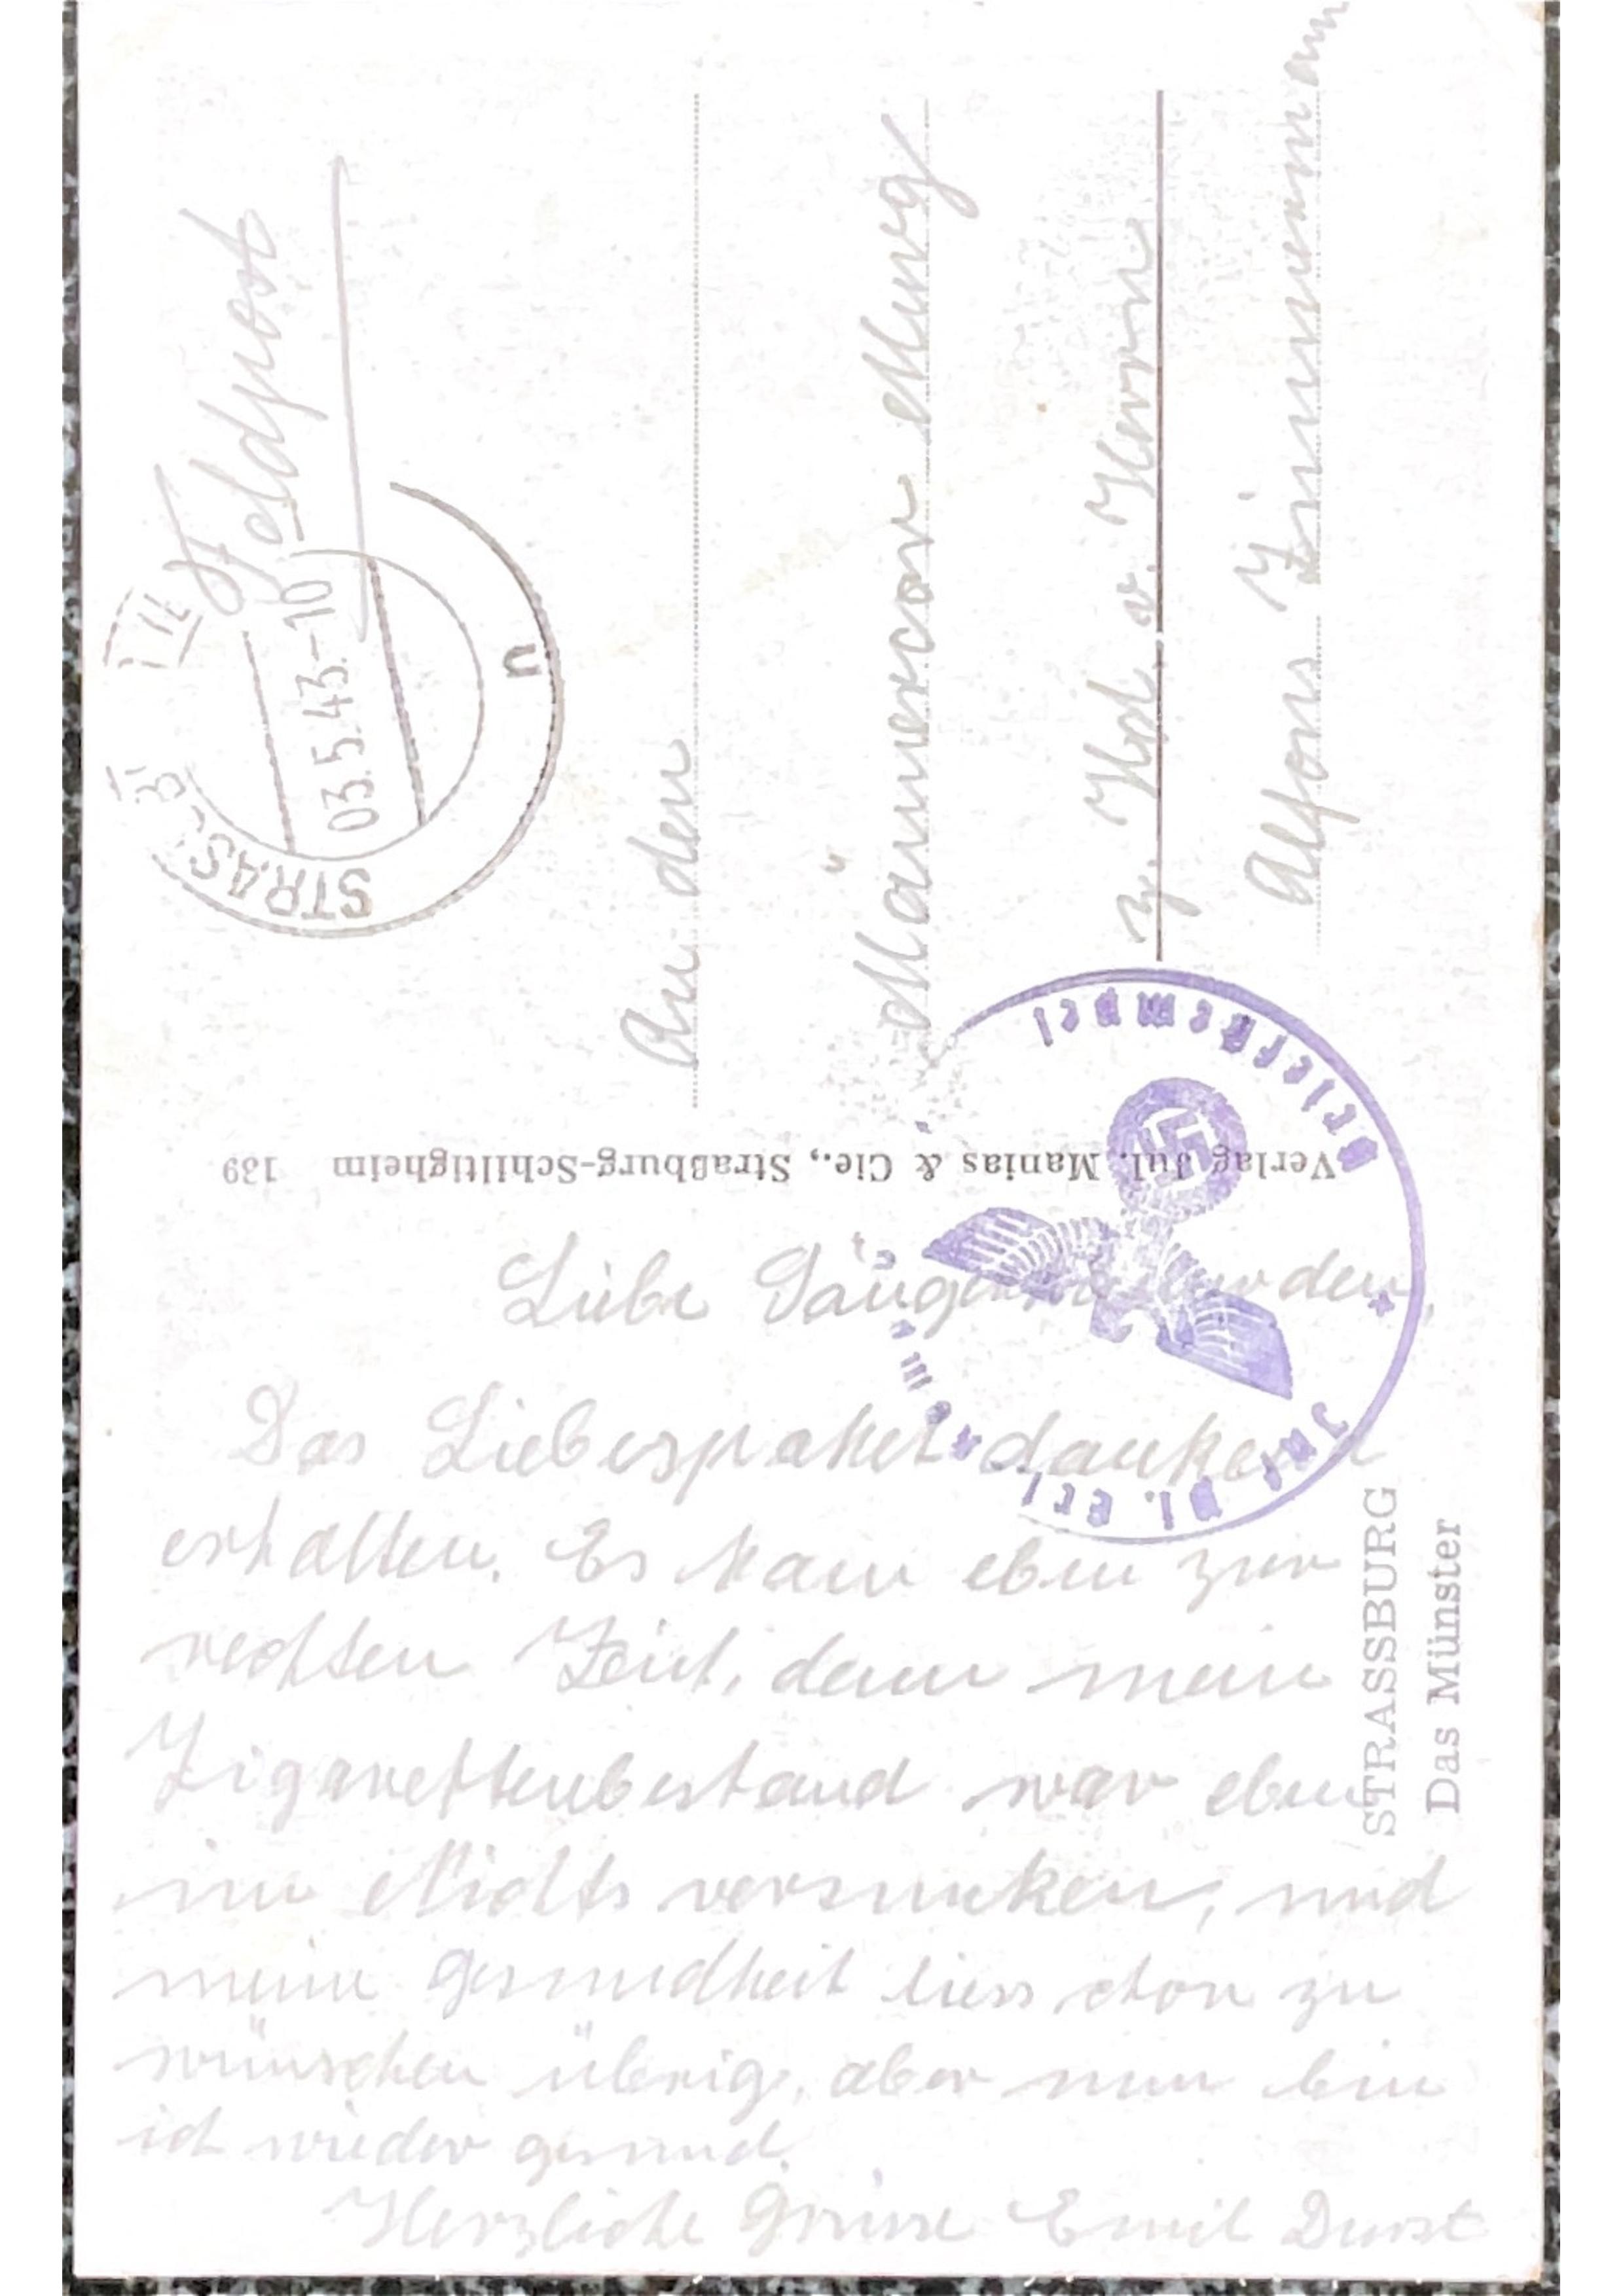 Feldpost
STRASSB
03.5.43.-10
n
An den
Männerchor Murg
z. Hd. v. Herrn
Alfons Zimmermann
Verlag Jul. Manias & Cie., Straßburg-Schiltigheim 139
Briefstempel
STRASSBURG
Das Münster
Liebe Sängerfreunden,
Das Liebespaket dankend
erhalten. Es kam eben zur
rechten Zeit, denn mein
Zigarettenbestand war eben
im Nichts versunken, und
meine Gesundheit liess schon zu
wünschen übrig, aber nun bin
ich wieder gesund.
Herzliche Grüsse Emil Durst